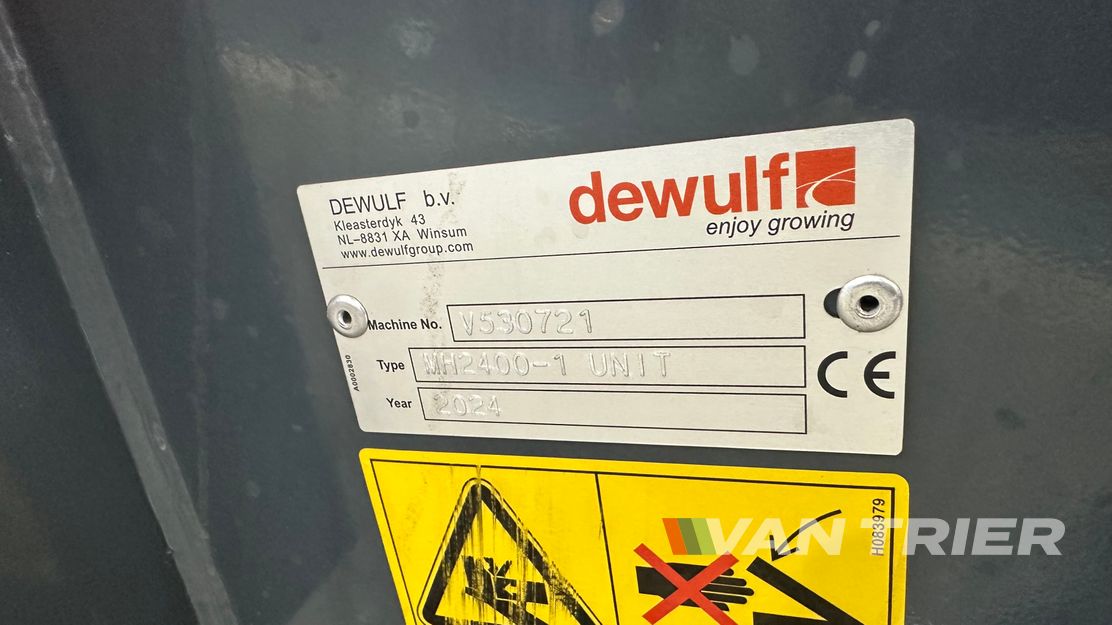 DEWULF b.v.
Kleasterdyk 43
NL-8831 XA Winsum
www.dewulfgroup.com
dewulf
enjoy growing
Machine No. V530721
Type MH2400-1 UNIT
Year 2024
A0002830
CE
H083979
VAN TRIER